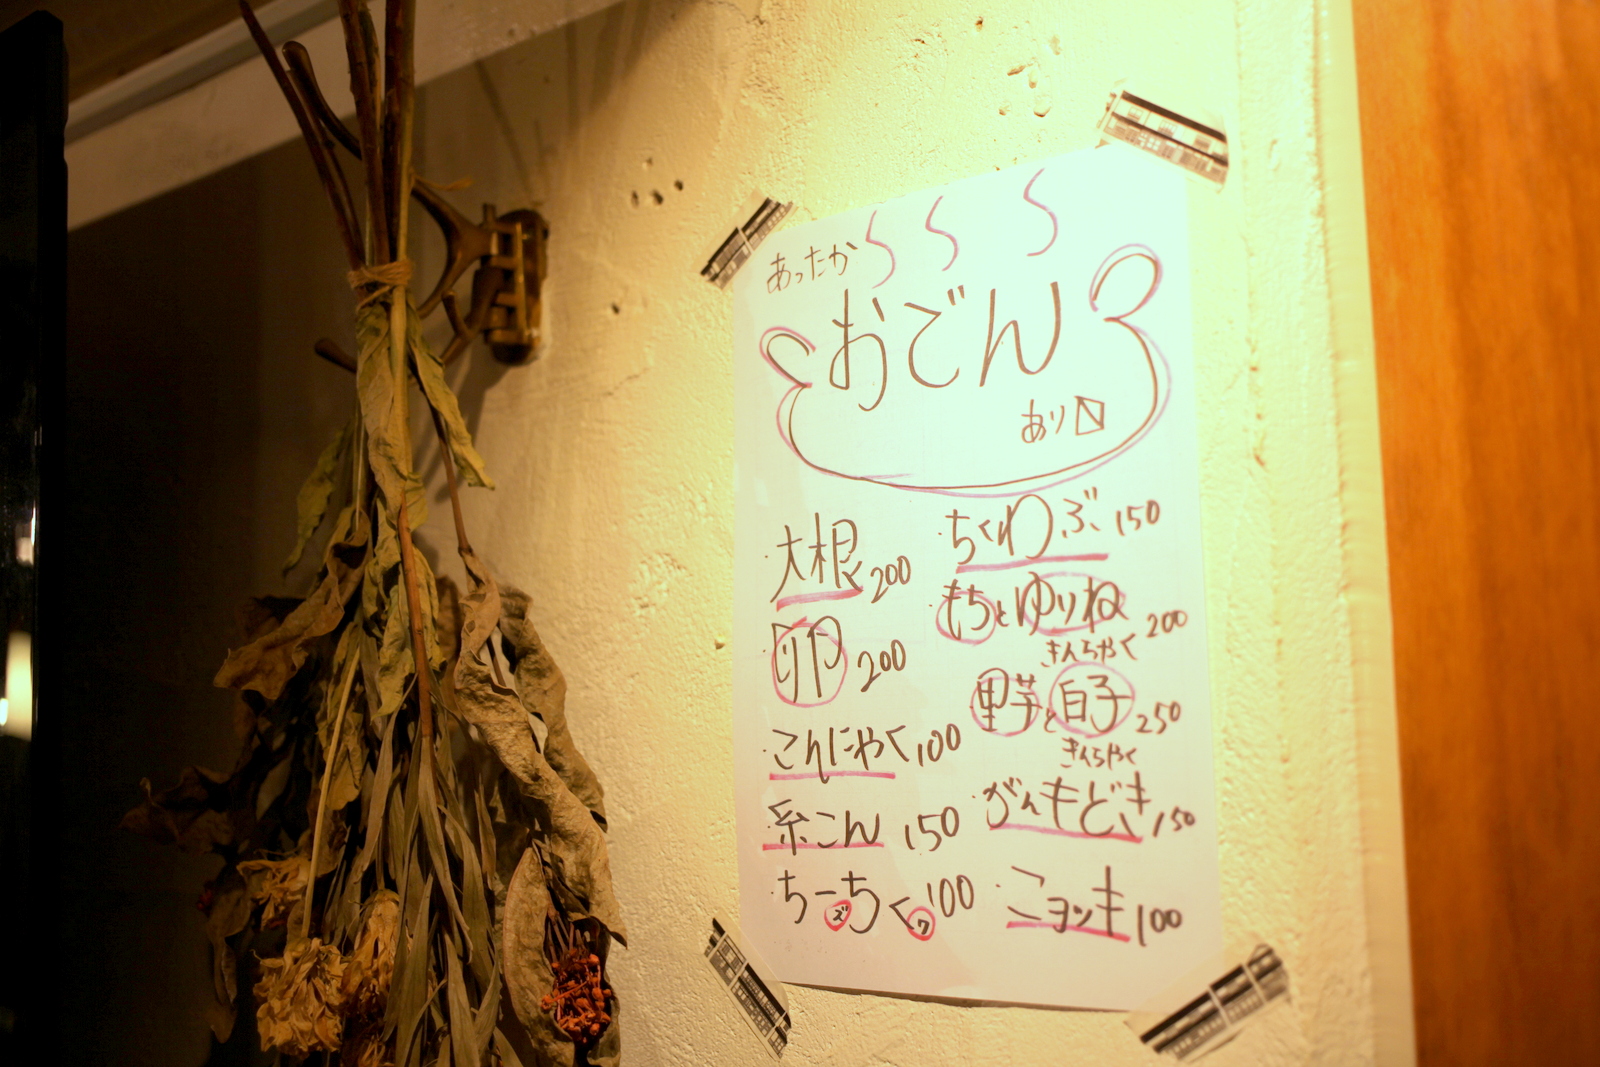 あったか
おでん
あり〼
・大根 200
・卵 200
・こんにゃく 100
・糸こん 150
・ちーズちくワ 100
・ちくわぶ 150
・もちとゆりね
きんちゃく 200
・里芋と白子 250
きんちゃく
・がんもどき 150
・ニョッキ 100